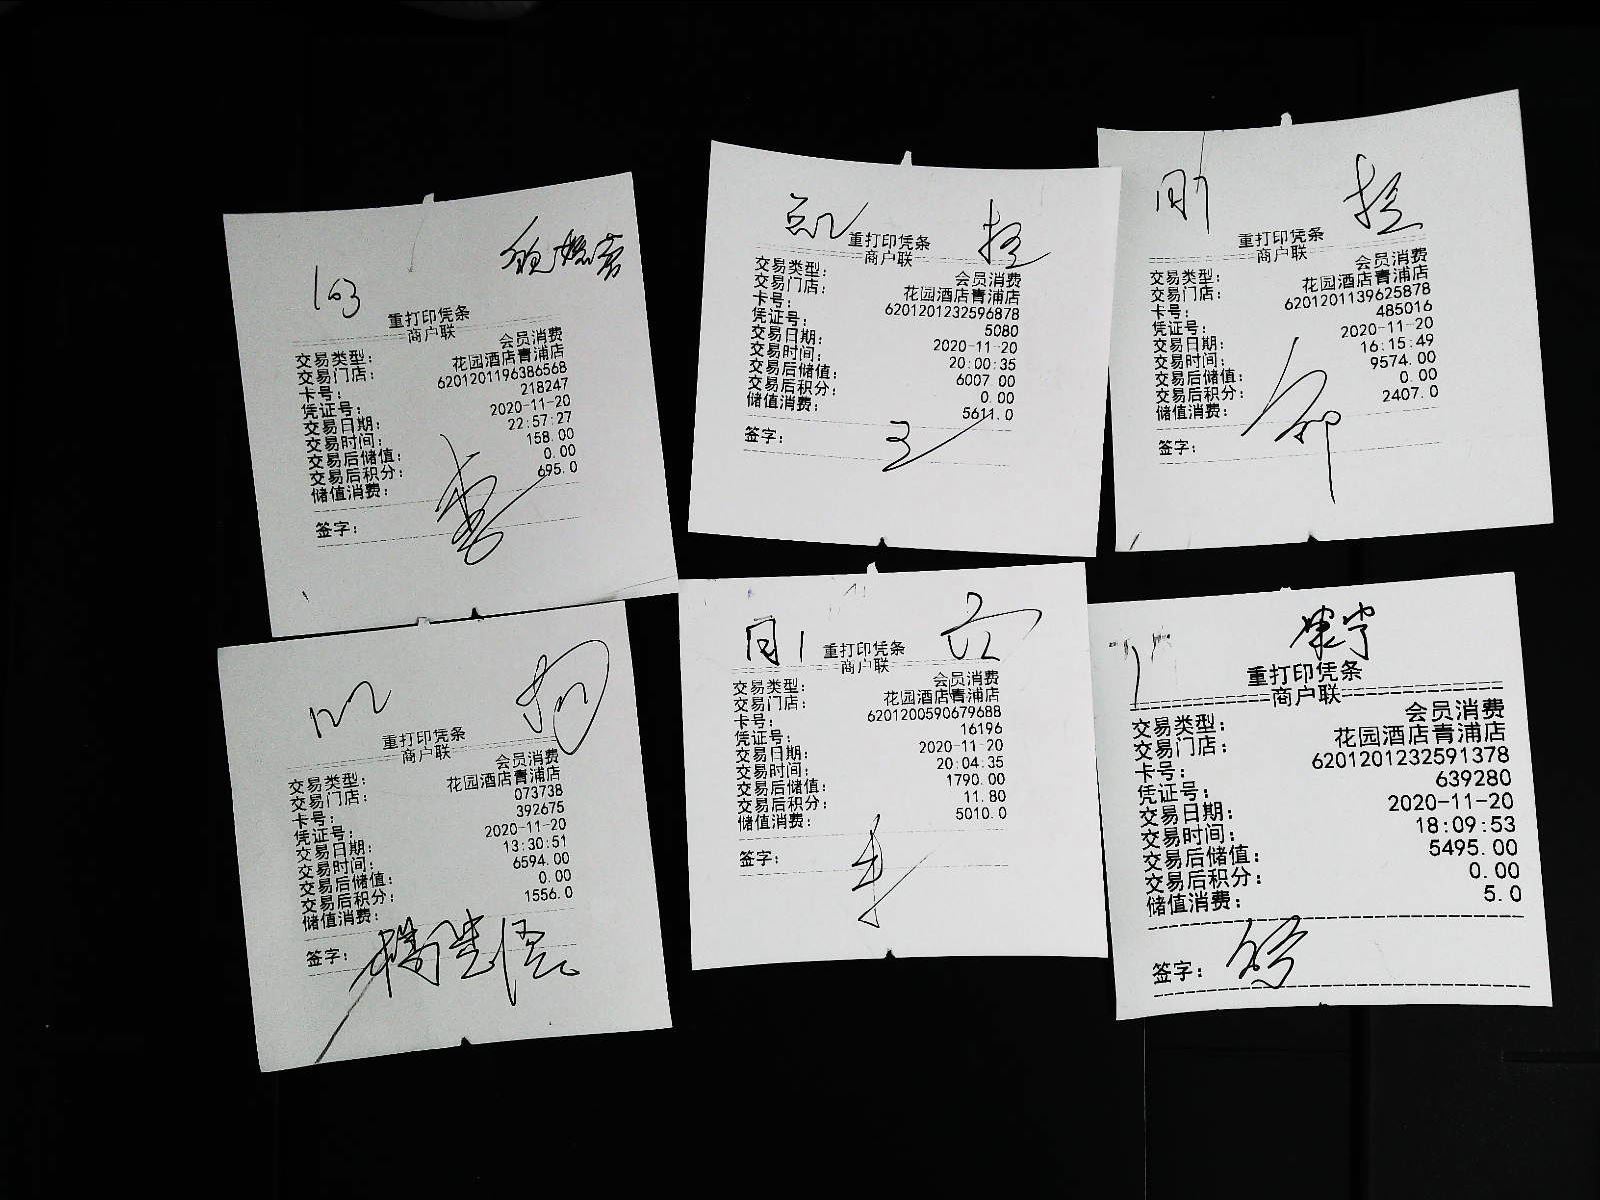 103
重打印凭条
商户联
交易类型: 会员消费
交易门店: 花园酒店青浦店
卡号: 6201201196386568
凭证号: 218247
交易日期: 2020-11-20
交易时间: 22:57:27
交易后储值: 158.00
交易后积分: 0.00
储值消费: 695.0
签字:
重打印凭条
商户联
交易类型: 会员消费
交易门店: 花园酒店青浦店
卡号: 6201201232596878
凭证号: 5080
交易日期: 2020-11-20
交易时间: 20:00:35
交易后储值: 6007.00
交易后积分: 0.00
储值消费: 5611.0
签字:
重打印凭条
商户联
交易类型: 会员消费
交易门店: 花园酒店青浦店
卡号: 6201201139625878
凭证号: 485016
交易日期: 2020-11-20
交易时间: 16:15:49
交易后储值: 9574.00
交易后积分: 0.00
储值消费: 2407.0
签字:
重打印凭条
商户联
交易类型: 会员消费
交易门店: 花园酒店青浦店
卡号: 073738
凭证号: 392675
交易日期: 2020-11-20
交易时间: 13:30:51
交易后储值: 6594.00
交易后积分: 0.00
储值消费: 1556.0
签字:
重打印凭条
商户联
交易类型: 会员消费
交易门店: 花园酒店青浦店
卡号: 6201200590679688
凭证号: 16196
交易日期: 2020-11-20
交易时间: 20:04:35
交易后储值: 1790.00
交易后积分: 11.80
储值消费: 5010.0
签字:
重打印凭条
商户联
交易类型: 会员消费
交易门店: 花园酒店青浦店
卡号: 6201201232591378
凭证号: 639280
交易日期: 2020-11-20
交易时间: 18:09:53
交易后储值: 5495.00
交易后积分: 0.00
储值消费: 5.0
签字: